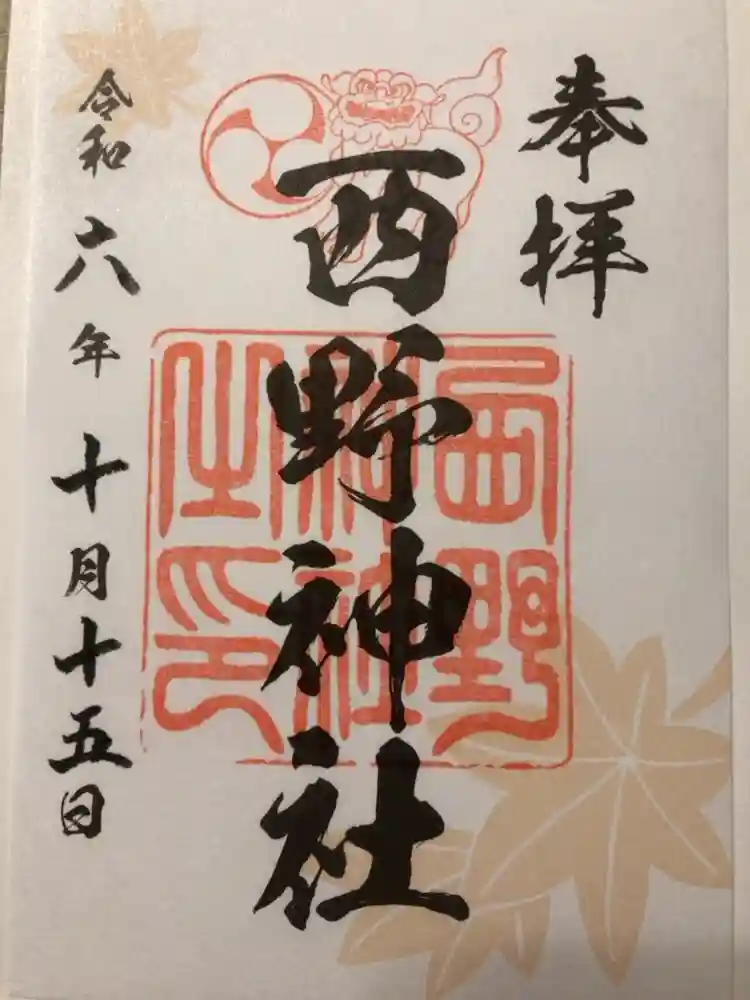 奉拝
西野神社
西野神社之印
令和六年十月十五日